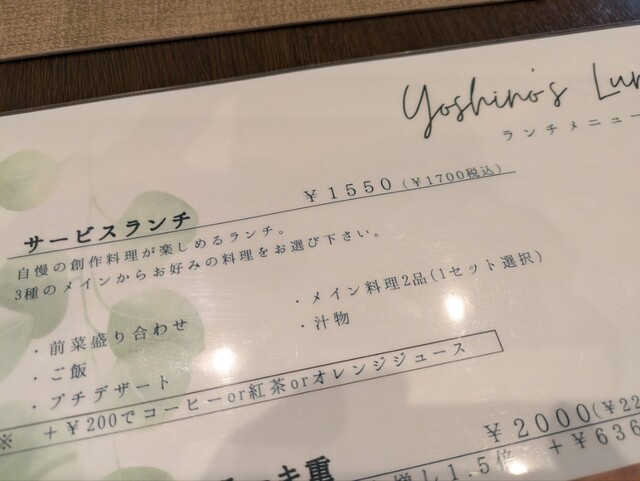 Yoshino's
ランチメニュー
サービスランチ ￥1550(￥1700税込)
自慢の創作料理が楽しめるランチ。
3種のメインからお好みの料理をお選び下さい。
・前菜盛り合わせ
・メイン料理2品(1セット選択)
・ご飯
・汁物
・プチデザート
※ ＋￥200でコーヒーor紅茶orオレンジジュース
重 ￥2000(￥22
増し1.5倍 ＋￥636